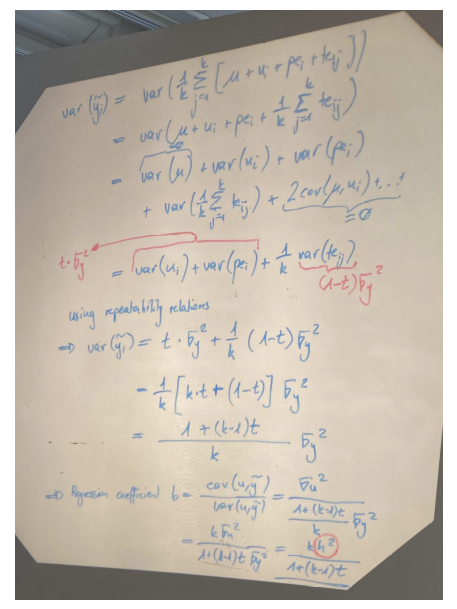 var(ỹi) = var(1/k Σ_{j=1}^{k} [μ + ui + pei + teij])
= var(μ + ui + pei + 1/k Σ_{j=1}^{k} teij)
=∅
= var(μ) + var(ui) + var(pei)
+ var(1/k Σ_{j=1}^{k} teij) + 2cov(μ, ui) + ...
=∅
t·σy²
= var(ui) + var(pei) + 1/k var(teij)
(1-t)σy²
using repeatability relations
⇒ var(ỹi) = t·σy² + 1/k (1-t)σy²
= 1/k [k·t + (1-t)] σy²
= (1+(k-1)t)/k σy²
⇒ Regression coefficient b = cov(u,ỹ)/var(u,ỹ) = σu²/((1+(k-1)t)/k σy²)
= kσu²/(1+(k-1)t σy²) = kh²/(1+(k-1)t)